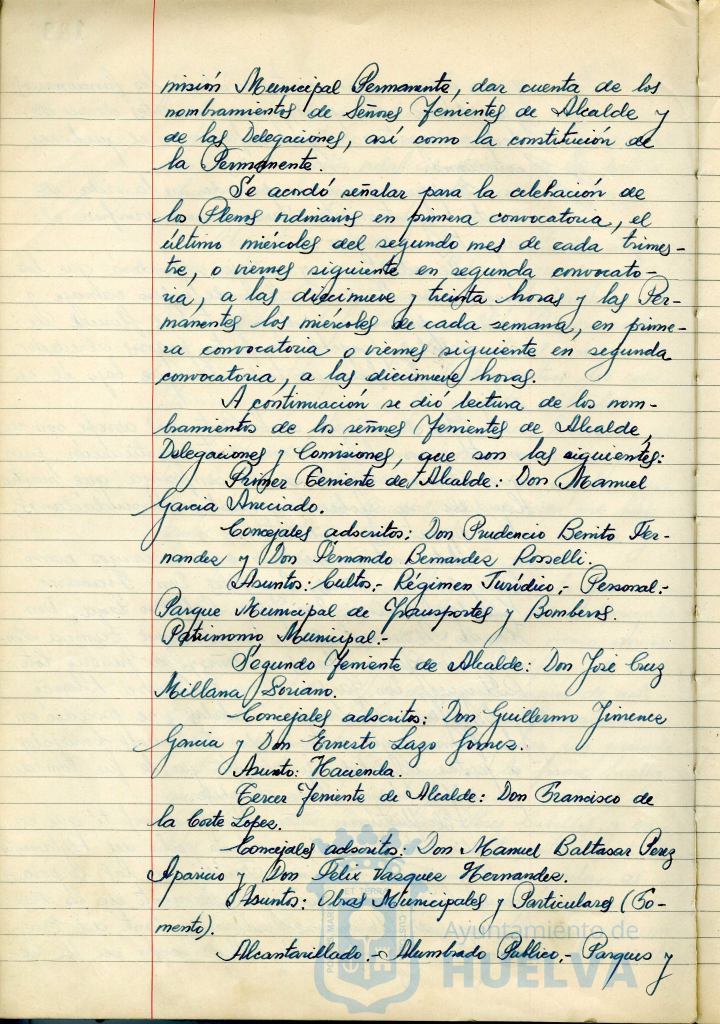 misión Municipal Permanente, dar cuenta de los
nombramientos de Señores Tenientes de Alcalde y
de las Delegaciones, así como la constitución de
la Permanente.
Se acordó señalar para la celebración de
los Plenos ordinarios en primera convocatoria, el
último miércoles del segundo mes de cada trimes-
tre, o viernes siguiente en segunda convocato-
ria, a las diecinueve y treinta horas y las Per-
manentes los miércoles de cada semana, en prime-
ra convocatoria o viernes siguiente en segunda
convocatoria, a las diecinueve horas.
A continuación se dió lectura de los nom-
bramientos de los señores Tenientes de Alcalde,
Delegaciones y Comisiones, que son las siguientes:
Primer Teniente de Alcalde: Don Manuel
Garcia Aneciado.
Concejales adscritos: Don Prudencio Benito Fer-
nandez y Don Fernando Bernardez Rosselli.
Asuntos: Cultos,- Régimen Jurídico,- Personal.-
Parque Municipal de Transportes y Bomberos.
Patrimonio Municipal.-
Segundo Teniente de Alcalde: Don José Cruz
Millana Soriano.
Concejales adscritos: Don Guillermo Jimenez
Garcia y Don Ernesto Lazo Gomez.
Asunto: Hacienda.
Tercer Teniente de Alcalde: Don Francisco de
la Corte Lopez.
Concejales adscritos: Don Manuel Baltasar Perez
Aparicio y Don Felix Vasquez Hernandez.
Asuntos: Obras Municipales y Particulares (Fo-
mento).
Alcantarillado.- Alumbrado Publico,- Parques y
Ayuntamiento de
HUELVA